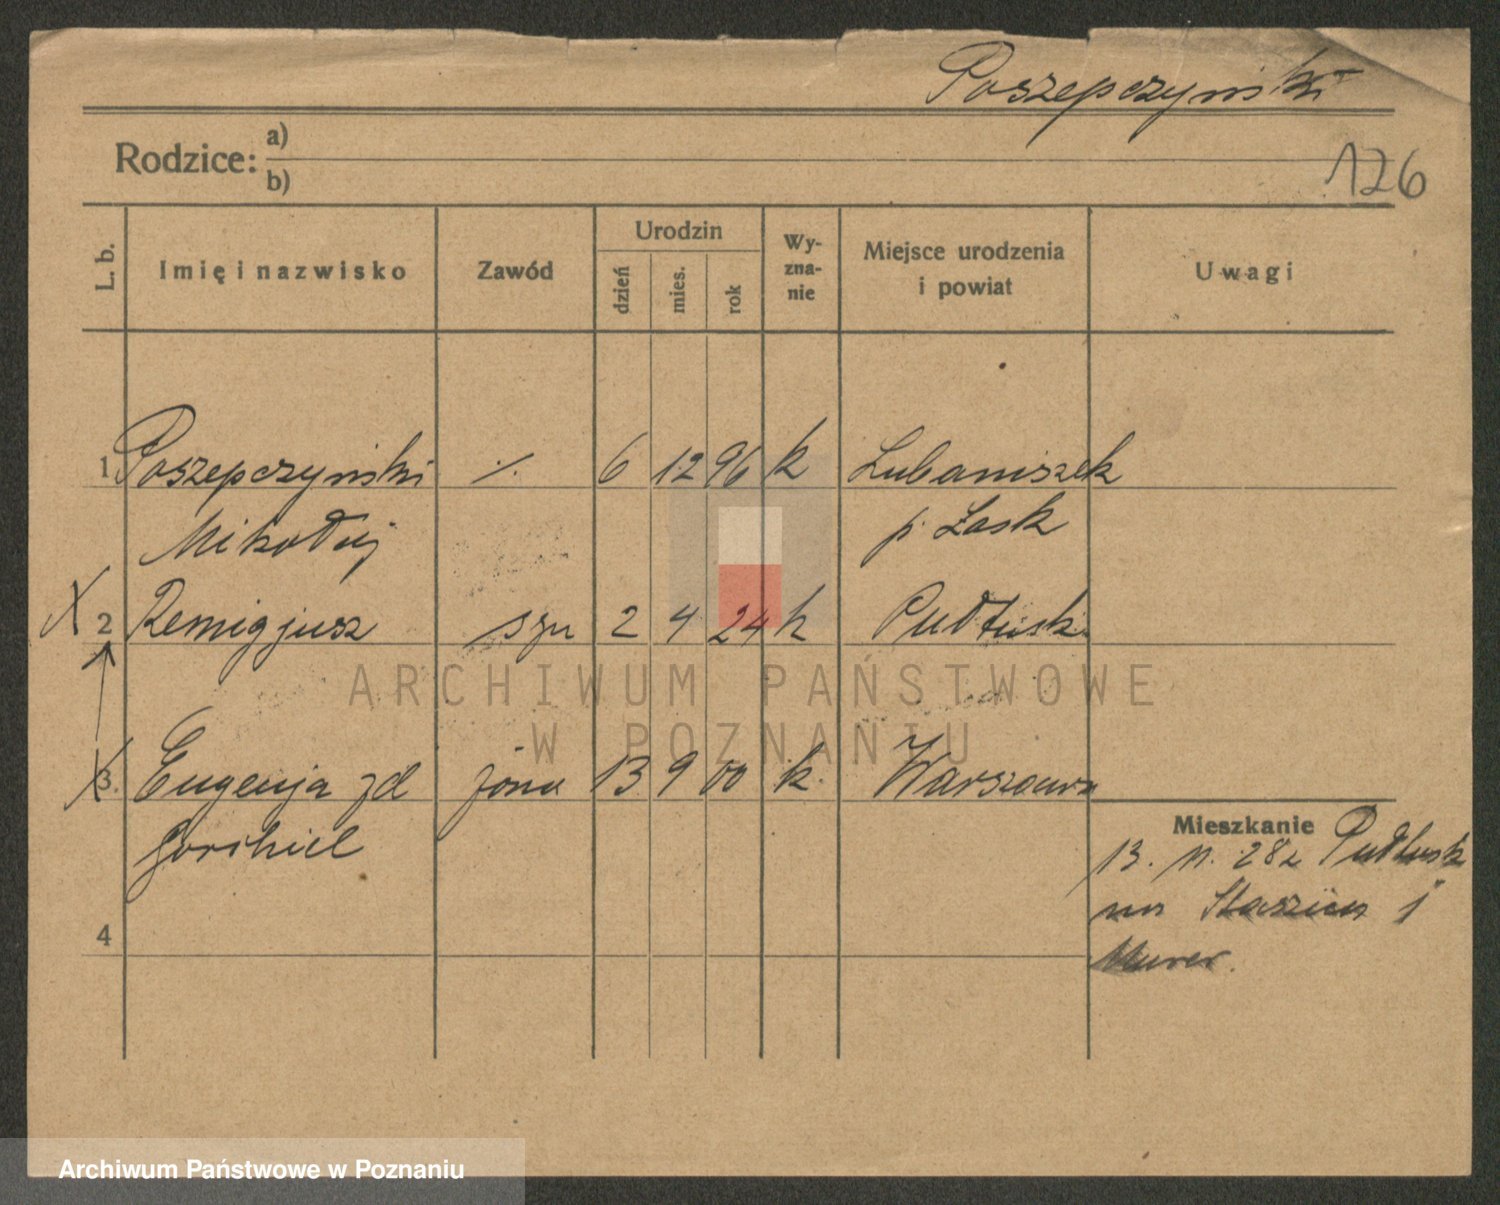 Poszepczyński
126
Rodzice: a)
b)
L. b. Imię i nazwisko Zawód Urodzin dzień mies. rok Wy-zna-nie Miejsce urodzenia i powiat Uwagi
1 Poszepczyński ./. 6 12 96 k Lubaniszek
Mikołaj p. Łask
X 2 Remigjusz syn 2 4 24 k Pułtusk
X 3. Eugenja zd żona 13 9 00 k. Warszawa
Mieszkanie
13. 11. 28 z Pułtusk
na Staszica 1
4
ARCHIWUM PAŃSTWOWE
W POZNANIU
Archiwum Państwowe w Poznaniu